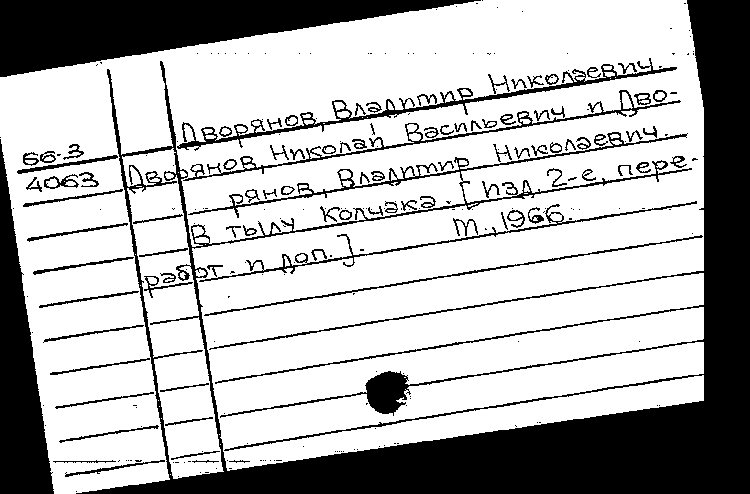 Дворянов, Владимир Николаевич.
66.3
4063
Дворянов, Николай Васильевич и Дво-
рянов, Владимир Николаевич.
В тылу Колчака. [Изд. 2-е, пере-
работ. и доп.]. М., 1966.